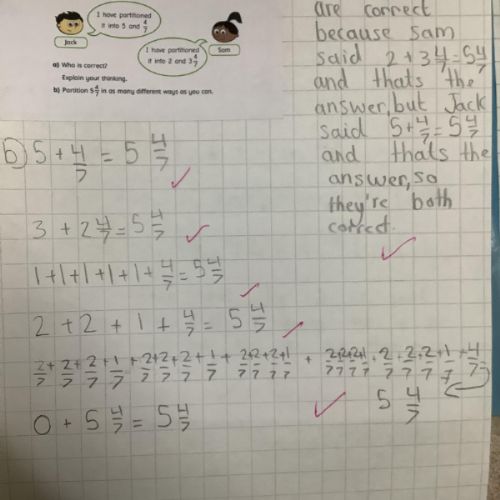 I have partitioned
it into 5 and 4/7
Jack
I have partitioned
it into 2 and 3 4/7
Sam
a) Who is correct?
Explain your thinking.
b) Partition 5 4/7 in as many different ways as you can.
are correct
because sam
said 2+3 4/7=5 4/7
and thats the
answer, but Jack
said 5+4/7=5 4/7
and thats the
answer, so
they're both
correct.
b) 5 + 4/7 = 5 4/7
3 + 2 4/7 = 5 4/7
1+1+1+1+1+4/7=5 4/7
2 + 2 + 1 + 4/7 = 5 4/7
2/7 + 2/7 + 2/7 + 1/7 + 2/7 + 2/7 + 2/7 + 1/7 + 2/7 + 2/7 + 2/7 + 1/7 + 2/7 + 2/7 + 2/7 + 1/7 + 2/7 + 2/7 + 2/7 + 1/7 + 4/7
5 4/7
0 + 5 4/7 = 5 4/7